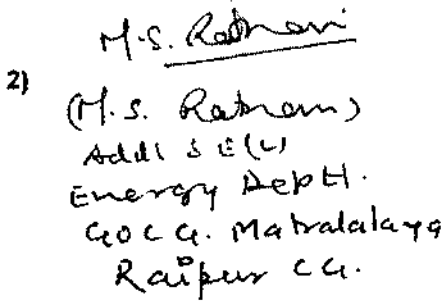 M.S. Ratnam
2)
(M.S. Ratnam)
Addl S E (L)
Energy Deptt.
GOCG. Matralalaya
Raipur CG.